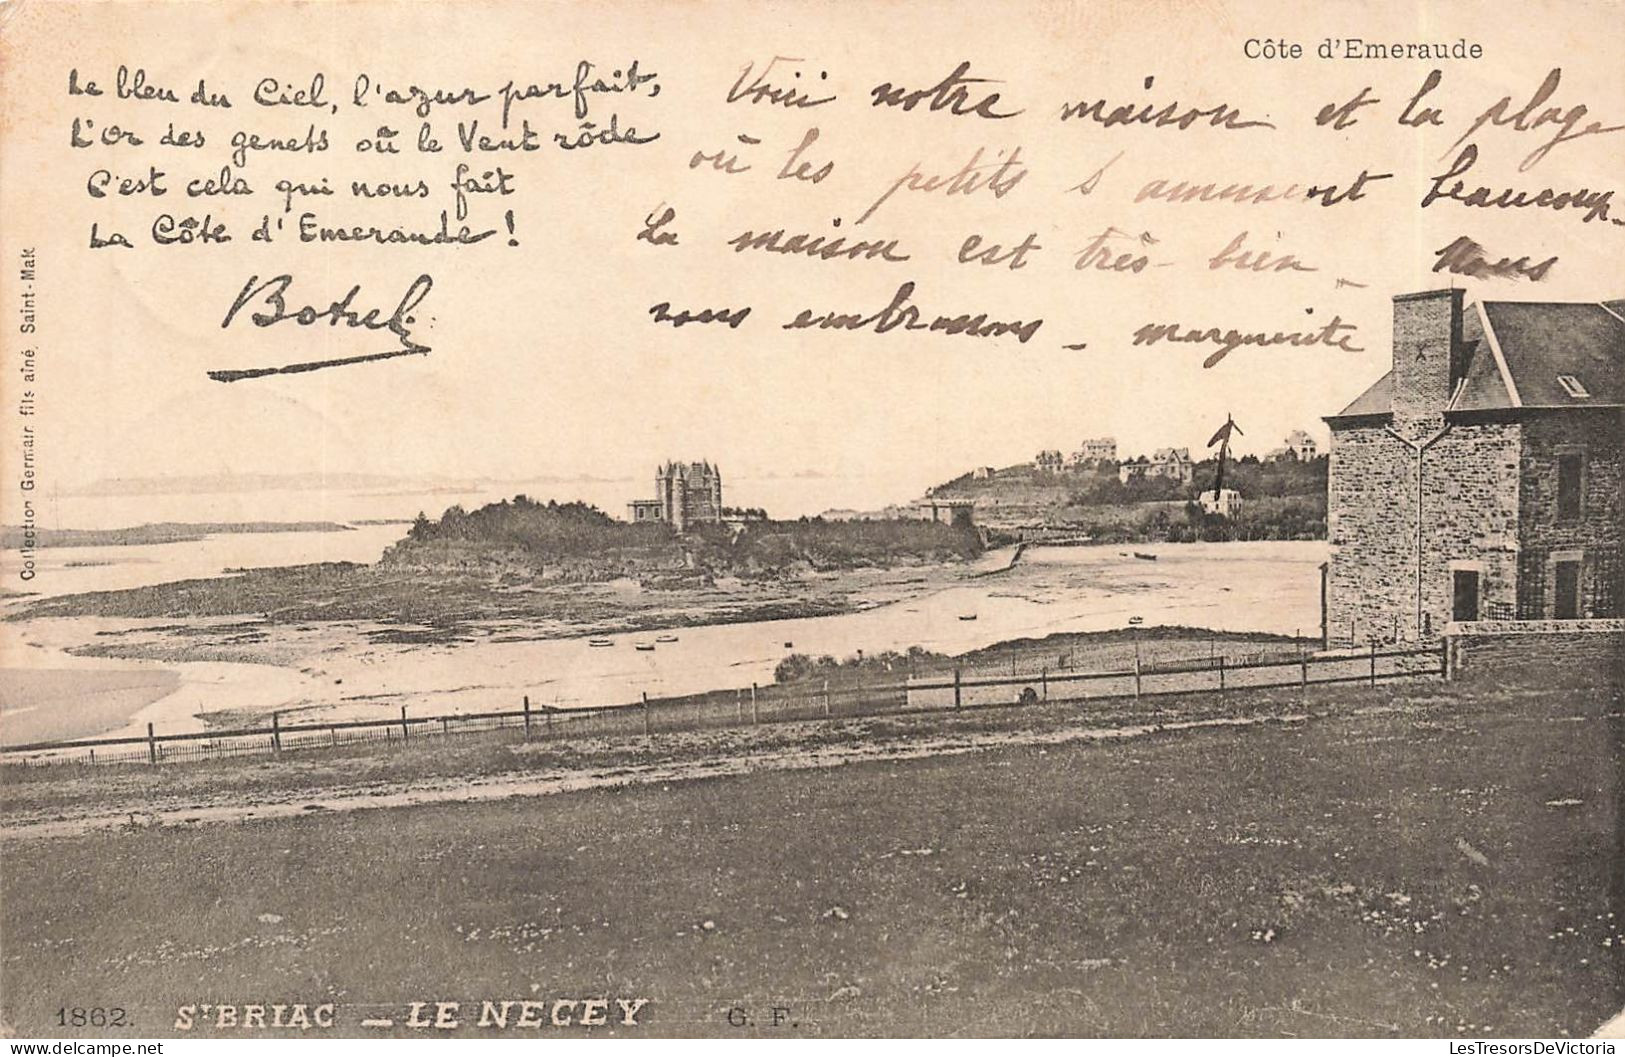 Côte d'Emeraude
Le bleu du Ciel, l'azur parfait,
L'Or des genets où le Vent rôde
C'est cela qui nous fait
La Côte d'Emeraude !
Botrel
Voici notre maison et la plage
où les petits s'amusent beaucoup.
La maison est très bien - Nous
vous embrassons - marguerite
X
Collection Germain fils aîné, Saint-Malo
1862. ST BRIAC - LE NECEY G. F.
LesTresorsDeVictoria